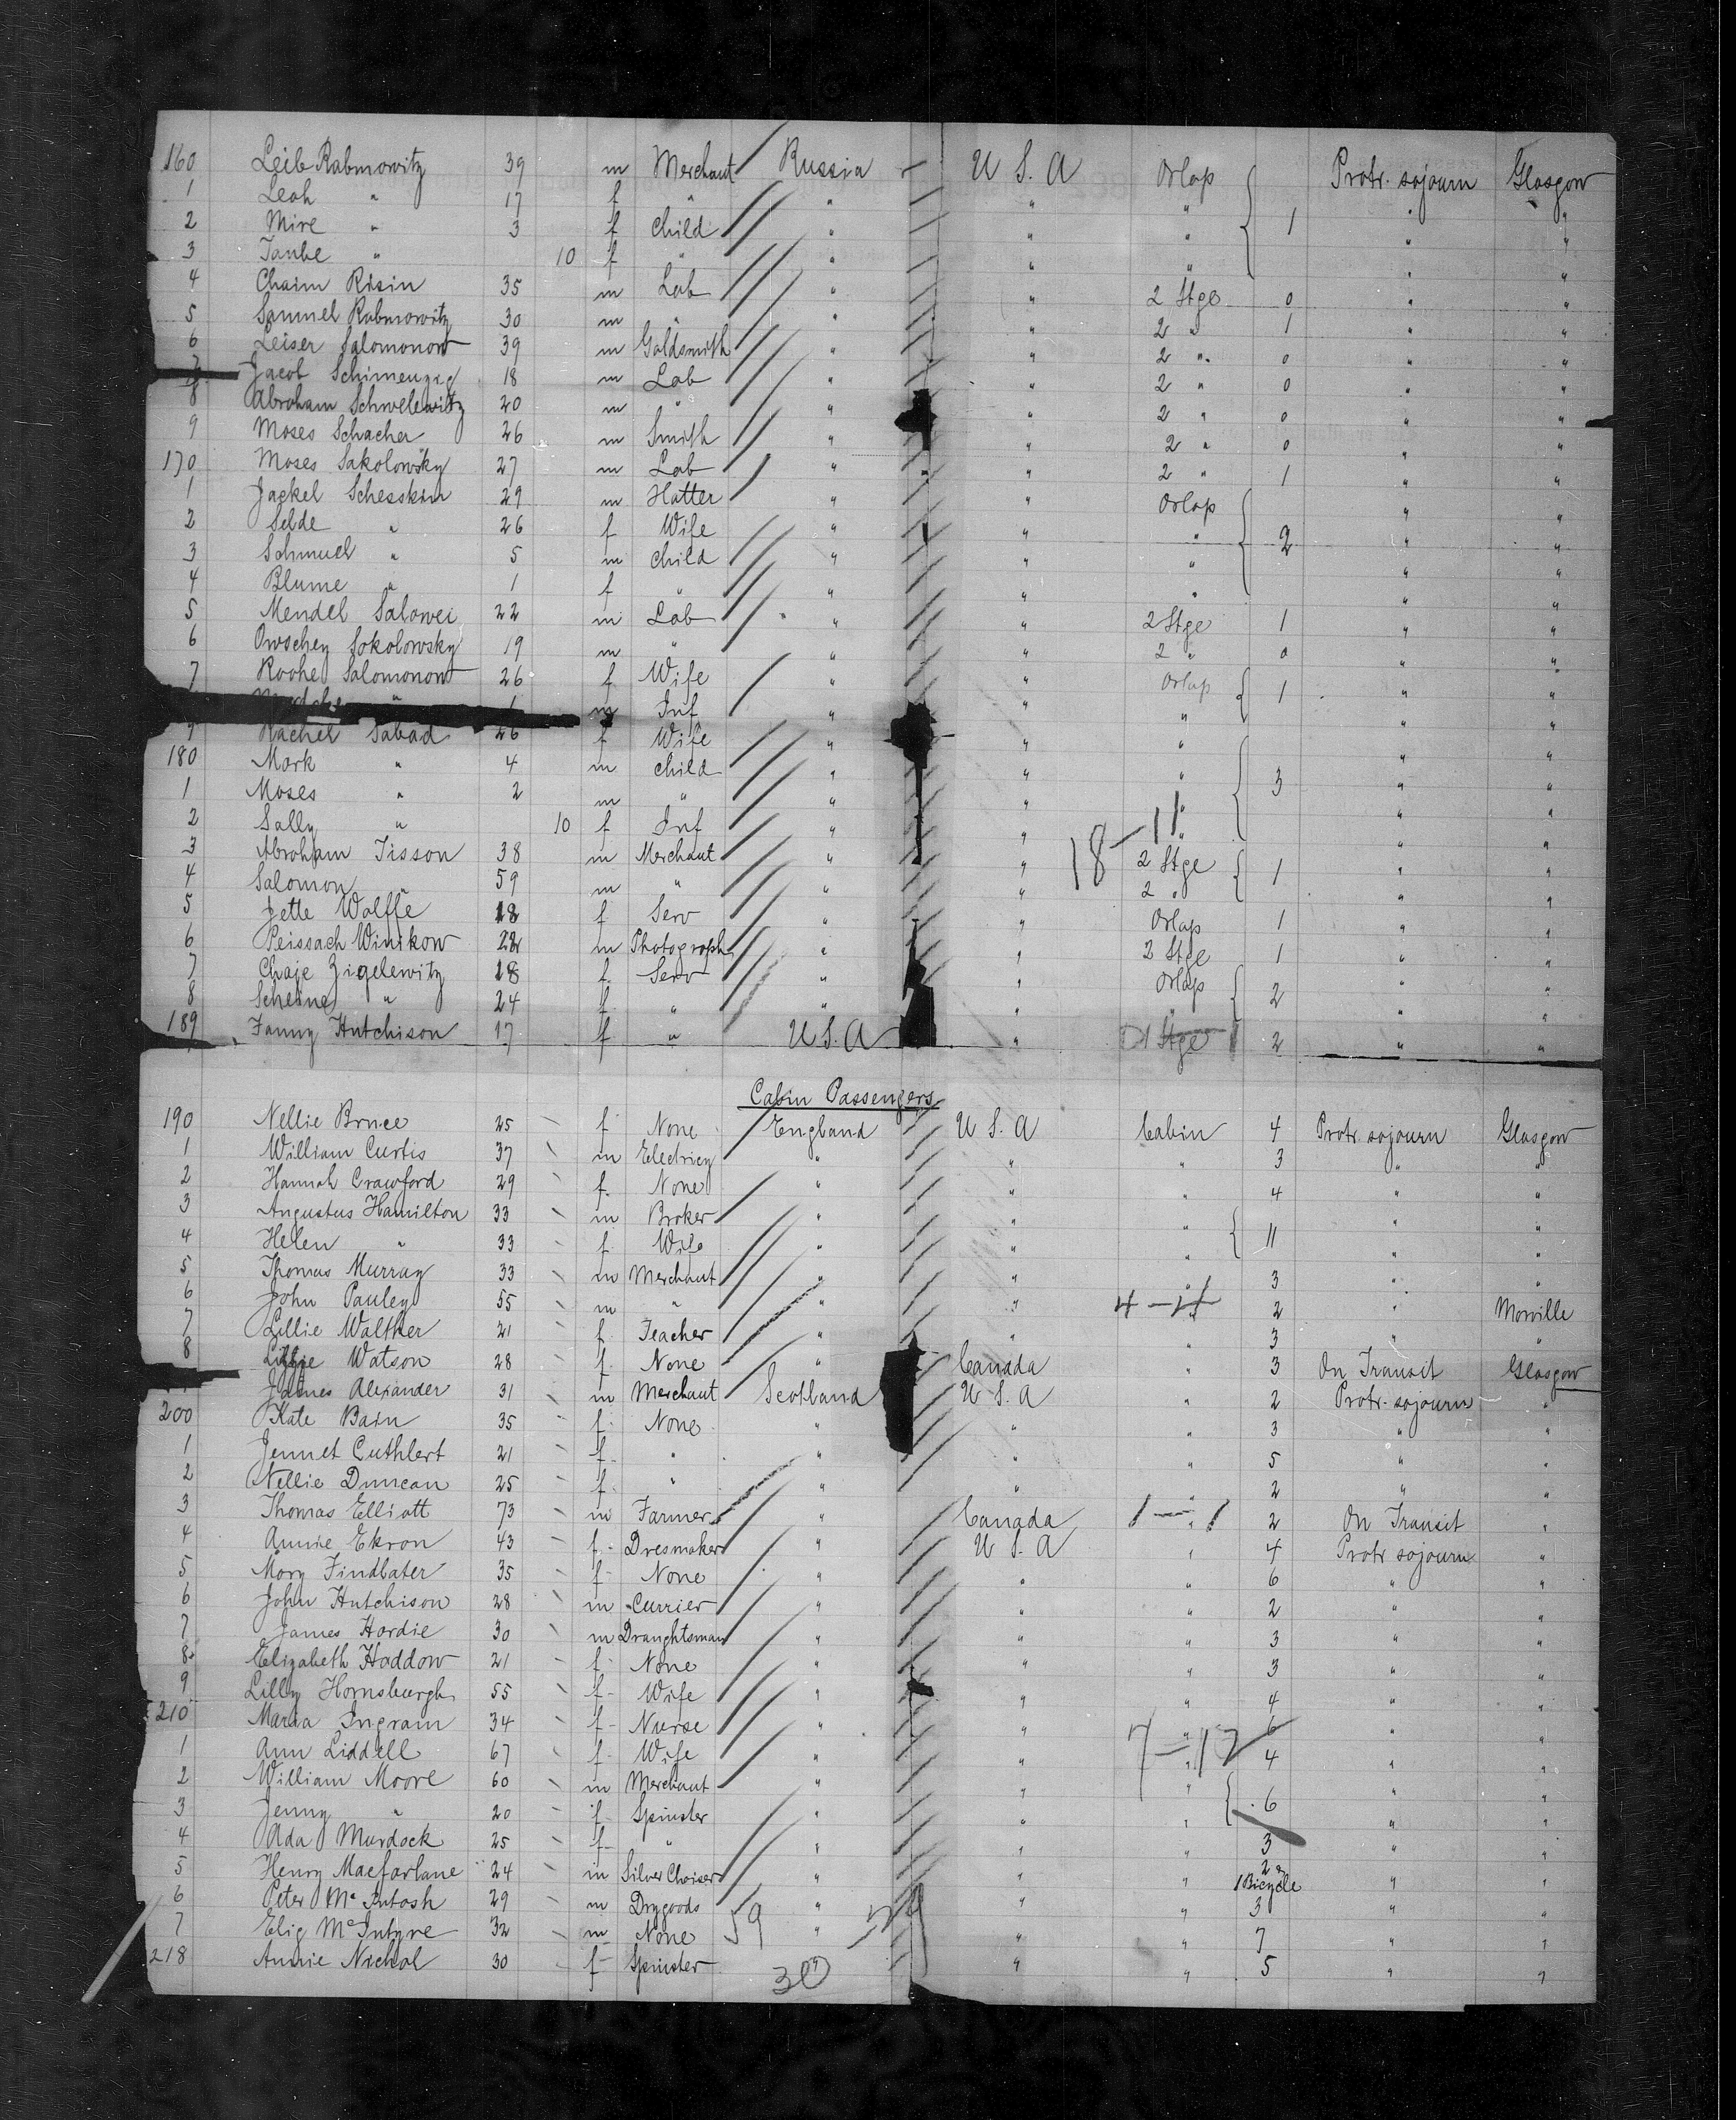 160 Leib Rabmowitz 39 m Merchaut Russia U S. A Orlop 1 Protr. sojourn Glasgow
1 Leah " 17 f " " " " " "
2 Mire " 3 f Child " " " " "
3 Taube " 10 f " " " " " "
4 Chaim Risin 35 m Lab " " 2 Stge 0 " "
5 Samuel Rabmowitz 30 m " " " 2 " 1 " "
6 Leiser Salomonow 39 m Goldsmith " " 2 " 0 " "
7 Jacob 18 m Lab " " 2 " 0 " "
8 Abraham Schwelewitz 20 m " " " 2 " 0 " "
9 Moses Schacher 26 m Smith " " 2 " 0 " "
170 Moses Sakolowsky 27 m Lab " " 2 " 1 " "
1 Jackel Schesskin 29 m Hatter " " Orlop 2 " "
2 Selde " 26 f Wife " " " " "
3 Schmuel " 5 m child " " " " "
4 Blume " 1 f " " " " " "
5 Mendel Salowei 22 m Lab " " 2 Stge 1 " "
6 Owschey Sokolowsky 19 m " " " 2 " 0 " "
7 Roohe Salomonow 26 f Wife " " Orlop 1 " "
" 1 m Inf " " " " "
9 Rachel Sabad 26 f Wife " " " 3 " "
180 Mark " 4 m child " " " " "
1 Moses " 2 m " " " " " "
2 Sally " 10 f Inf " " " " "
18-11
3 Abraham Tisson 38 m Merchaut " " 2 Stge 1 " "
4 Salomon " 59 m " " " 2 " " "
5 Jette Wolffe 18 f Serv " " Orlop 1 " "
6 Peissach Winikow 22 m Photograph " " 2 Stge 1 " "
7 Chaje Zigelewitz 18 f Serv " " Orlop 2 " "
8 Scheine " 24 f " " " " " "
189 Fanny Hutchison 17 f " U S. A " 1 Stge 2 " "
Cabin Passengers
190 Nellie Bruce 25 f None England U S. A Cabin 4 Protr. sojourn Glasgow
1 William Curtis 37 m Electricn " " " 3 " "
2 Hannah Crawford 29 f None " " " 4 " "
3 Augustus Hamilton 33 m Broker " " " 11 " "
4 Helen " 33 f Wife " " " " "
5 Thomas Murray 33 m Merchaut " " " 3 " "
6 John Pauley 55 m " " " 4-11 " 2 " Morville
7 Lillie Walther 21 f Teacher " " " 3 " "
8 Lizzie Watson 28 f None " Canada " 3 On Transit Glasgow
James Alexander 31 m Merchaut Scotland U S. A " 2 Protr. sojourn "
200 Kate Bain 35 f None " " " 3 " "
1 Jennet Cuthlert 21 f " " " " 5 " "
2 Nellie Duncan 25 f " " " " 2 " "
3 Thomas Elliott 73 m Farmer " Canada 1-1 " 2 On Transit "
4 Annie Ekron 43 f Dresmaker " U S. A " 4 Protr sojourn "
5 Mary Findlater 35 f None " " " 6 " "
6 John Hutchison 28 m Currier " " " 2 " "
7 James Hardie 30 m Draughtsman " " " 3 " "
8 Elizabeth Haddow 21 f None " " " 3 " "
9 Lilly Hornsburgh 55 f Wife " " " 4 " "
210 Maria Ingram 34 f Nurse " " " 6 " "
7-12
1 Ann Liddell 67 f Wife " " " 4 " "
2 William Moore 60 m Merchaut " " " 6 " "
3 Jenny " 20 f Spinster " " " " "
4 Ada Murdock 25 f " " " " 3 " "
5 Henry Macfarlane 24 m Silver Chaiser " " " 2 & 1 Bicycle " "
6 Peter Mc Intosh 29 m Drygoods " " " 3 " "
7 Elig McIntyre 32 m None 59 " " " 7 " "
218 Annie Nichol 30 f Spinster 30 " " " 5 " "